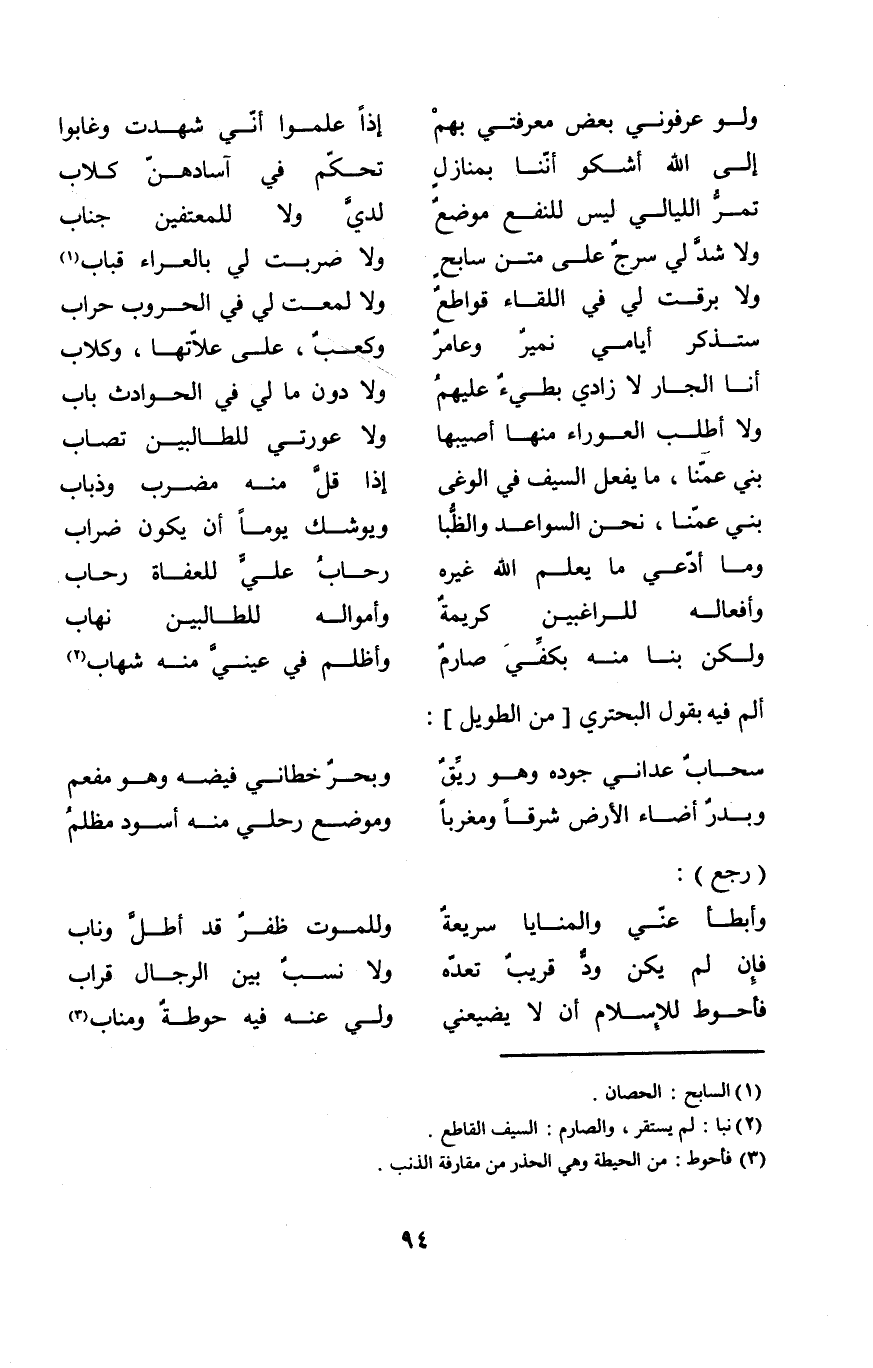 ولو عرفوني بعض معرفتي بهمْ إذاً علموا أنّي شهدت وغابوا
إلى الله أشكو أنّنا بمنازلٍ تحكّم في آسادهنّ كلاب
تمرُّ الليالي ليس للنفع موضعٌ لديَّ ولا للمعتفين جناب
ولا شدَّ لي سرجٌ على متن سابحٍ ولا ضربت لي بالعراء قباب(١)
ولا برقت لي في اللقاء قواطعٌ ولا لمعت لي في الحروب حراب
ستذكر أيامي نميرٌ وعامرٌ وكعبٌ ، على علاّتها ، وكلاب
أنا الجار لا زادي بطيءٌ عليهمُ ولا دون ما لي في الحوادث باب
ولا أطلب العوراء منها أصيبها ولا عورتي للطالبين تصاب
بني عمّنا ، ما يفعل السيف في الوغى إذا قلَّ منه مضرب وذباب
بني عمّنا ، نحن السواعد والظُّبا ويوشك يوماً أن يكون ضراب
وما أدّعي ما يعلم الله غيره رحابُ عليَّ للعفاة رحاب
وأفعاله للراغبين كريمةٌ وأمواله للطالبين نهاب
ولكن بنا منه بكفِّيَ صارمٌ وأظلم في عينيَّ منه شهاب(٢)
ألم فيه بقول البحتري [ من الطويل ] :
سحابٌ عداني جوده وهو ريِّقٌ وبحرٌ خطاني فيضه وهو مفعم
وبدرٌ أضاء الأرض شرقاً ومغرباً وموضع رحلي منه أسود مظلمُ
( رجع ) :
وأبطأ عنّي والمنايا سريعةٌ وللموت ظفرٌ قد أطلَّ وناب
فإن لم يكن ودٌّ قريبٌ تعدّه ولا نسبٌ بين الرجال قراب
فأحوط للإسلام أن لا يضيعني ولي عنه فيه حوطةٌ ومناب(٣)
(١) السابح : الحصان .
(٢) نبا : لم يستقر ، والصارم : السيف القاطع .
(٣) فأحوط : من الحيطة وهي الحذر من مقارفة الذنب .
٩٤